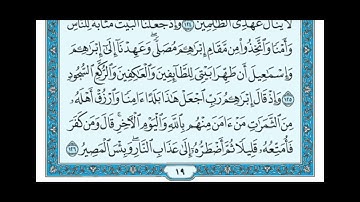 لَا يَنَالُ عَهْدِى ٱلظَّٰلِمِينَ ١٢٤ وَإِذْ جَعَلْنَا ٱلْبَيْتَ مَثَابَةً لِّلنَّاسِ
وَأَمْنًا وَٱتَّخِذُوا۟ مِن مَّقَامِ إِبْرَٰهِـۧمَ مُصَلًّى ۖ وَعَهِدْنَآ إِلَىٰٓ إِبْرَٰهِـۧمَ
وَإِسْمَٰعِيلَ أَن طَهِّرَا بَيْتِىَ لِلطَّآئِفِينَ وَٱلْعَٰكِفِينَ وَٱلرُّكَّعِ ٱلسُّجُودِ
١٢٥ وَإِذْ قَالَ إِبْرَٰهِـۧمُ رَبِّ ٱجْعَلْ هَٰذَا بَلَدًا ءَامِنًا وَٱرْزُقْ أَهْلَهُۥ
مِنَ ٱلثَّمَرَٰتِ مَنْ ءَامَنَ مِنْهُم بِٱللَّهِ وَٱلْيَوْمِ ٱلْءَاخِرِ ۖ قَالَ وَمَن كَفَرَ
فَأُمَتِّعُهُۥ قَلِيلًا ثُمَّ أَضْطَرُّهُۥٓ إِلَىٰ عَذَابِ ٱلنَّارِ ۖ وَبِئْسَ ٱلْمَصِيرُ ١٢٦
١٩